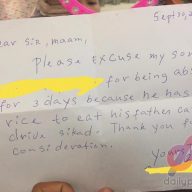 Sept 30, 2
ear Sir, maam,
Please excuse my son
for being ab
for 3 days because he has
rice to eat his father ca
drive sikad. Thank you f
consideration.
you